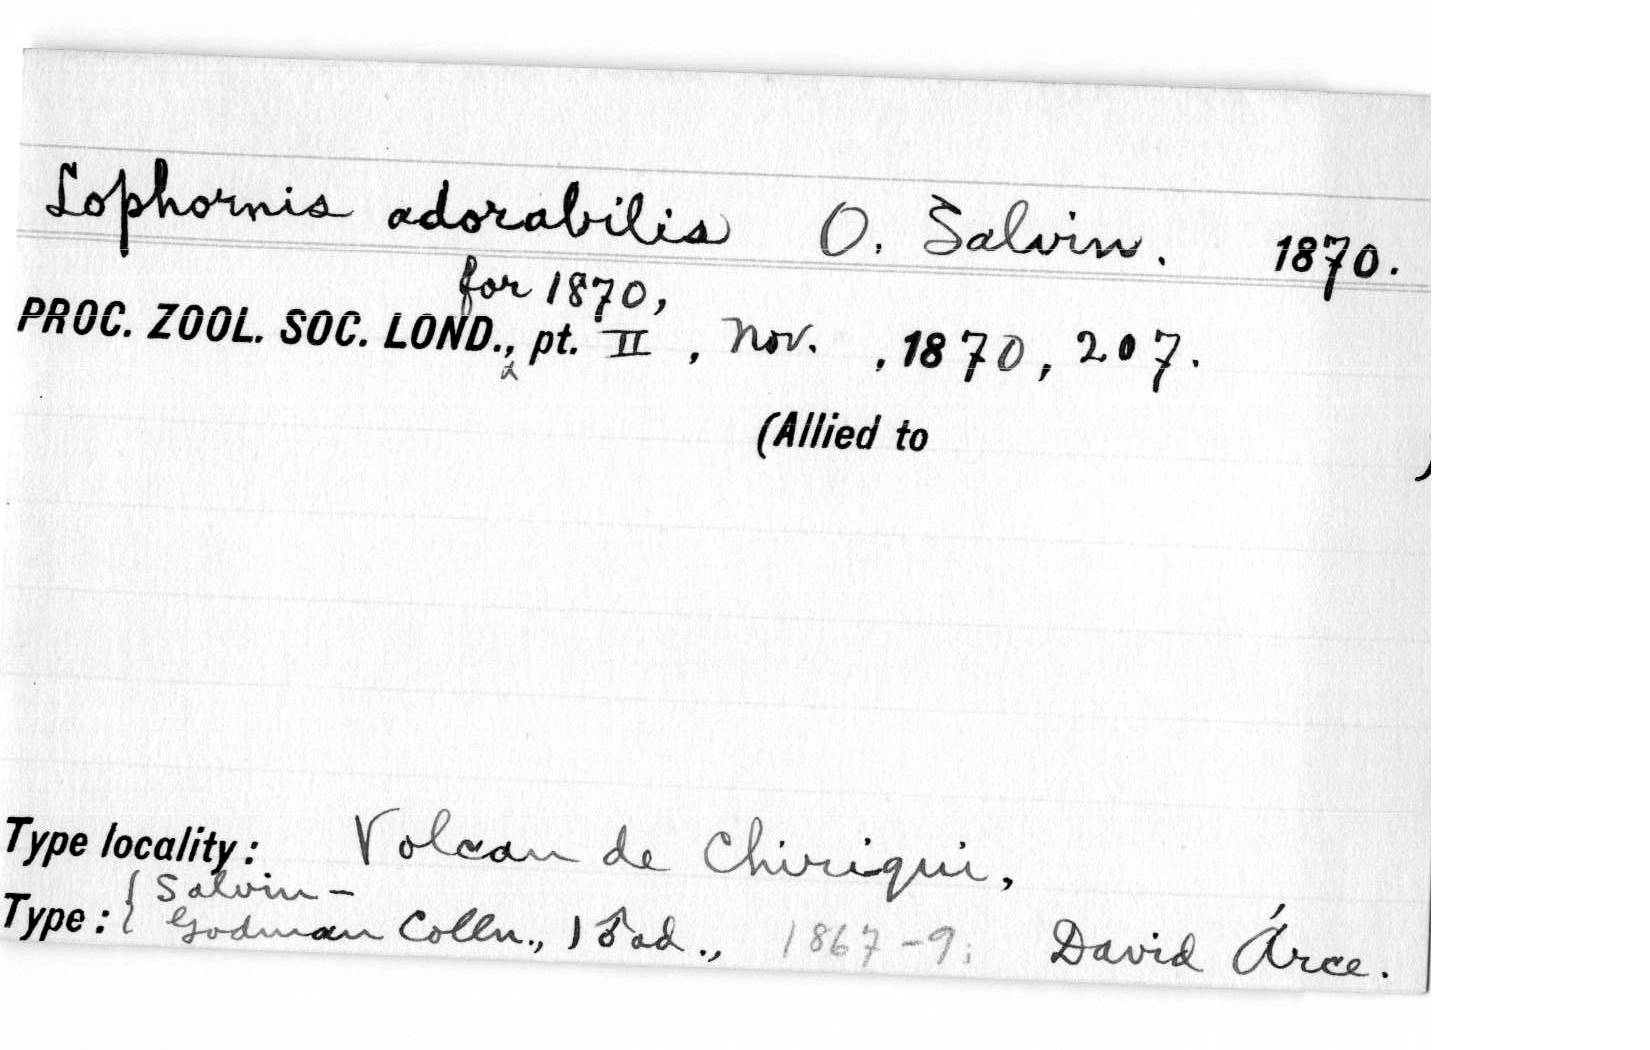 Lophornis adorabilis O. Salvin. 1870.
for 1870,
PROC. ZOOL. SOC. LOND., pt. II, Nov. , 1870, 207.
(Allied to )
Type locality: Volcan de Chiriqui,
Type: { Salvin-
Godman Colln., 1 ♂ ad., 1867-9; David Árce.